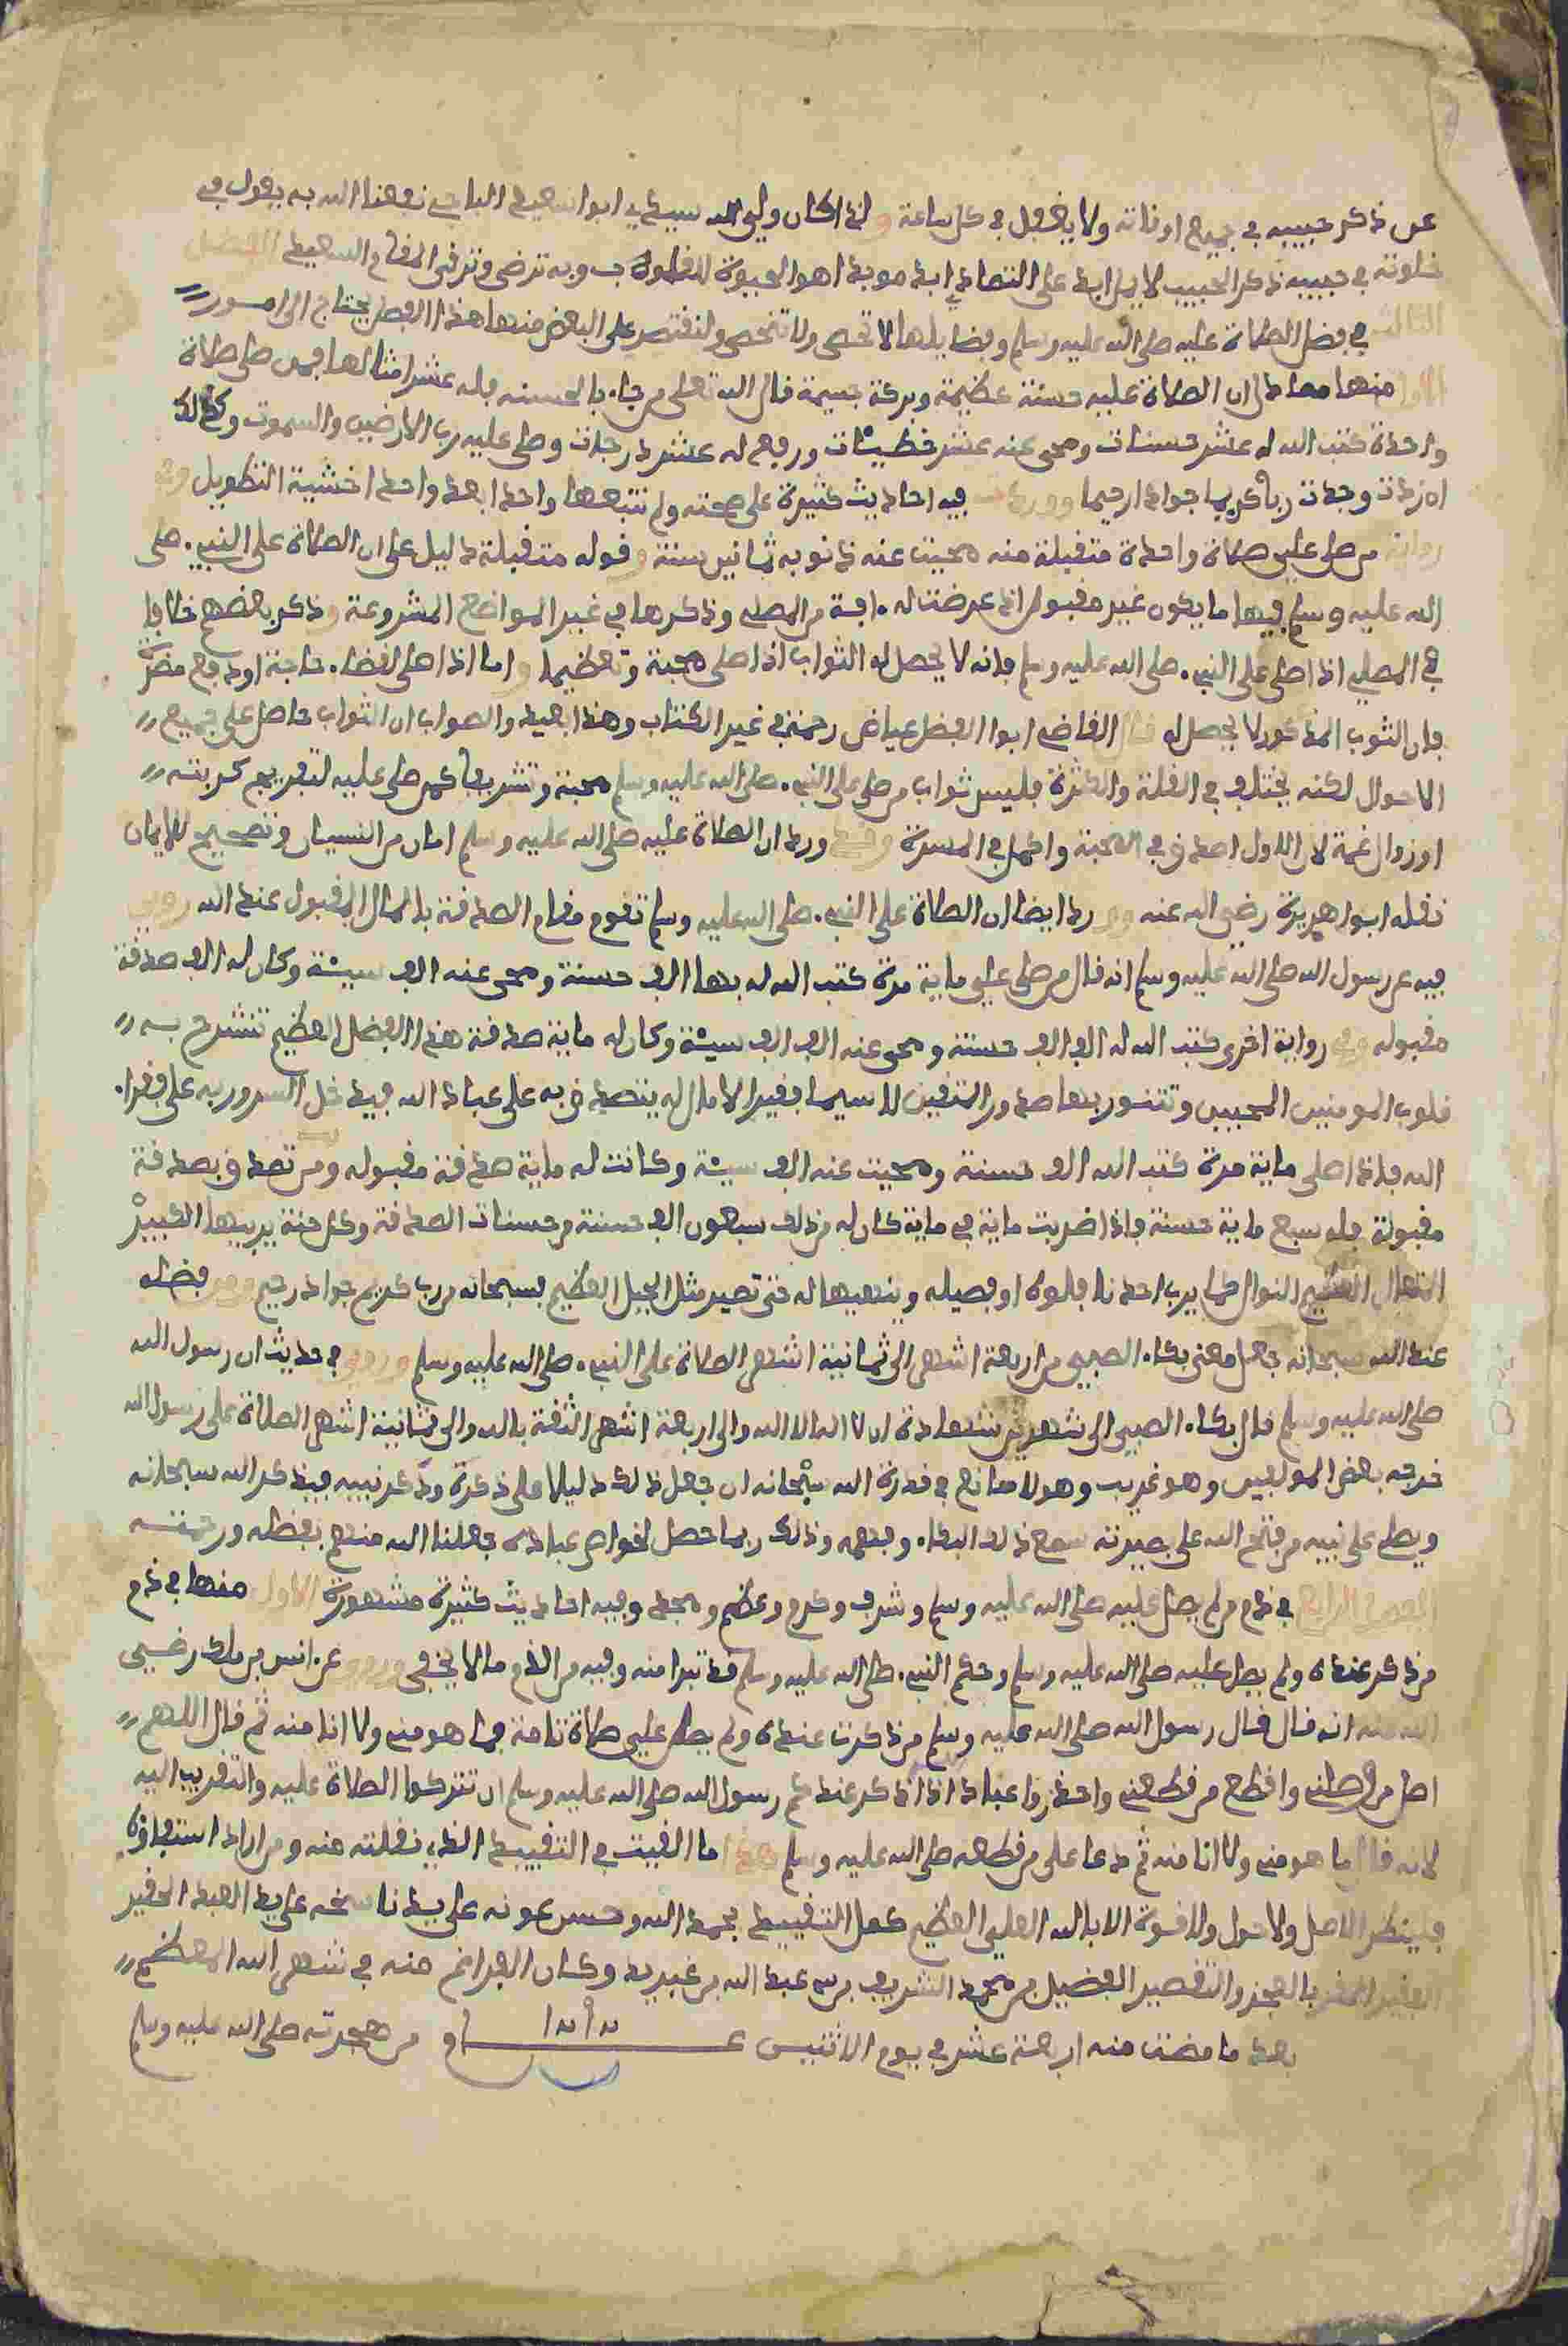 عن ذكر حبيبه في جميع اوقاته ولا يغفل في كل ساعة ولذا كان ولي الله سيدي ابو اسعيد الباجي نفعنا الله به يقول في
خلوته في حبيبه ذكر الحبيب لا يزال ابدا على التمادي ابدا موبدا اهو الحبيب وبه ترضى وترقى المقام السعيد الفصل
الثالث في فضل الصلاة عليه صلى الله عليه وسلم وفضايلها لا تحصى ولا تنحصى ولنقتصر على البعض منها هذا الفصل يحتاج الى امور
الاول منها معاطي ان الصلاة عليه حسنة عظيمة وبركة جسيمة قال الله تعلى من جاء بالحسنه فله عشر امثالها فمن صلى صلاة
واحدة كتب الله له عشر حسنات ومحى عنه عشر خطيئات ورفع له عشر درجات وصلى عليه رب الارضين والسموت وكذلك
ان زدت وجدت ربا كريما جوادا رحيما وورد فيه احاديث كثيرة على صحته ولم نتبعها واحدا بعد واحد اخشية التطويل وفي
رواية من صلى علي صلاة واحدة متقبلة منه محيت عنه ذنوبه ثمانين سنة وقوله متقبلة دليل على ان الصلاة على النبي صلى
الله عليه وسلم فيها ما يكون غير مقبول اذا عرضت له افة من المصلي وذكرها في غير المواضع المشروعة وذكر بعضهم خلافا
في المصلي اذا صلى على النبي صلى الله عليه وسلم فانه لا يحصل له الثواب اذا صلى محبة وتعظيما واما اذا صلى لقضاء حاجة او دفع مضرة
فان الثوب المذكور لا يحصل له قال القاضي ابوا الفضل عياض رحمه في غير الكتاب وهذا بعيد والصواب ان الثواب حاصل على جميع
الاحوال لكنه يختلف في القلة والكثرة فليس ثواب من صلى على النبي صلى الله عليه وسلم محبة وتشريفا كمن صلى عليه لتفريج كربته
او زوال غمة لان الاول اصدق في المحبة واكمل في المسرة وقد ورد ان الصلاة عليه صلى الله عليه وسلم امان من النسيان وتصحيح للايمان
نقله ابوا هريرة رضي الله عنه وورد ايضا ان الصلاة على النبي صلى الله عليه وسلم تقوم مقام الصدقة بالمال المقبول عند الله روي
فيه عن رسول الله صلى الله عليه وسلم انه قال من صلى علي ماية مرة كتب الله له بها الف حسنة ومحى عنه الف سيئة وكان له الف صدقة
مقبوله وفي رواية اخرى كتب الله له الف الف حسنة ومحى عنه الف الف سيئة وكان له ماية صدقة هذا الفضل العظيم تنشرح به
قلوب المومنين المحبين وتتنور بها صدور المتقين لا سيما فقير لا مال له يتصدق به على عباد الله فيدخل السرور به على فقراء
الله فاذا صلى ماية مرة كتب الله الف حسنة ومحيت عنه الف سيئة وكانت له ماية صدقة مقبوله ومن تصدق بصدقة
مقبولة فله سبع ماية حسنة فاذا ضربت ماية في ماية كان له من ذلك سبعون الف حسنة من حسنات الصدقة وكل حسنة يربيها الكبير
المتعال العظيم النوال كما يرب احدنا فلوه او فصيله وينميها له حتى تصير مثل الجبل العظيم فسبحانه من رب كريم جواد رحيم ومن فضله
عند الله سبحانه جعل معنى بكاء الصبي من اربعة اشهر الى ثمانية اشهر الصلاة على النبي صلى الله عليه وسلم وروي في حديث ان رسول الله
صلى الله عليه وسلم قال بكاء الصبي الى شهرين شهادة ان لا اله الا الله والى اربعة اشهر الثقة بالله والى ثمانية اشهر الصلاة على رسول الله
خرجه بعض المولفين وهو غريب وهو لا مانع في قدرة الله سبحانه ان جعل ذلك دليلا على ذكره وذكر نبيه فيذكر الله سبحانه
ويصلي على نبيه من فتح الله على بصيرته سمع ذلك البكاء وفهمه وذلك ربما حصل لخواص عباده جعلنا الله منهم بفضله ورحمته
الفصل الرابع في ذم من لم يصل عليه صلى الله عليه وسلم وشرف وكرم وعظم ومجد وفيه احاديث كثيرة مشهورة الاول منها في ذم
من ذكر عنده ولم يصل عليه صلى الله عليه وسلم وحكم النبي صلى الله عليه وسلم قد تبرا منه وفيه من الذم ما لا يخفى وروي عن انس بن ملك رضي
الله عنه انه قال قال رسول الله صلى الله عليه وسلم من ذكرت عنده ولم يصل علي صلاة تامة فما هو مني ولا انا منه ثم قال اللهم
اصل من وصلني واقطع من قطعني واحذروا عباد الله اذا ذكر عندكم رسول الله صلى الله عليه وسلم ان تتركوا الصلاة عليه والتقرب اليه
لانه قال ما هو مني ولا انا منه ثم دعا على من قطعه صلى الله عليه وسلم هذا ما الفيت في التقييد الذي نقلته منه ومن اراد استيفاؤه
فلينظر الاصل ولا حول ولا قوة الا بالله العلي العظيم كمل التقييد بحمد الله وحسن عونه على يد ناسخه على يد العبد الحقير
الفقير المقر بالعجز والتقصير الفضيل بن محمد الشريف بن عبد الله بن عبيريد وكان الفراغ منه في شهر الله المعظم
بعد ما مضت منه اربعة عشر في يوم الاثنين عام من هجرته صلى الله عليه وسلم